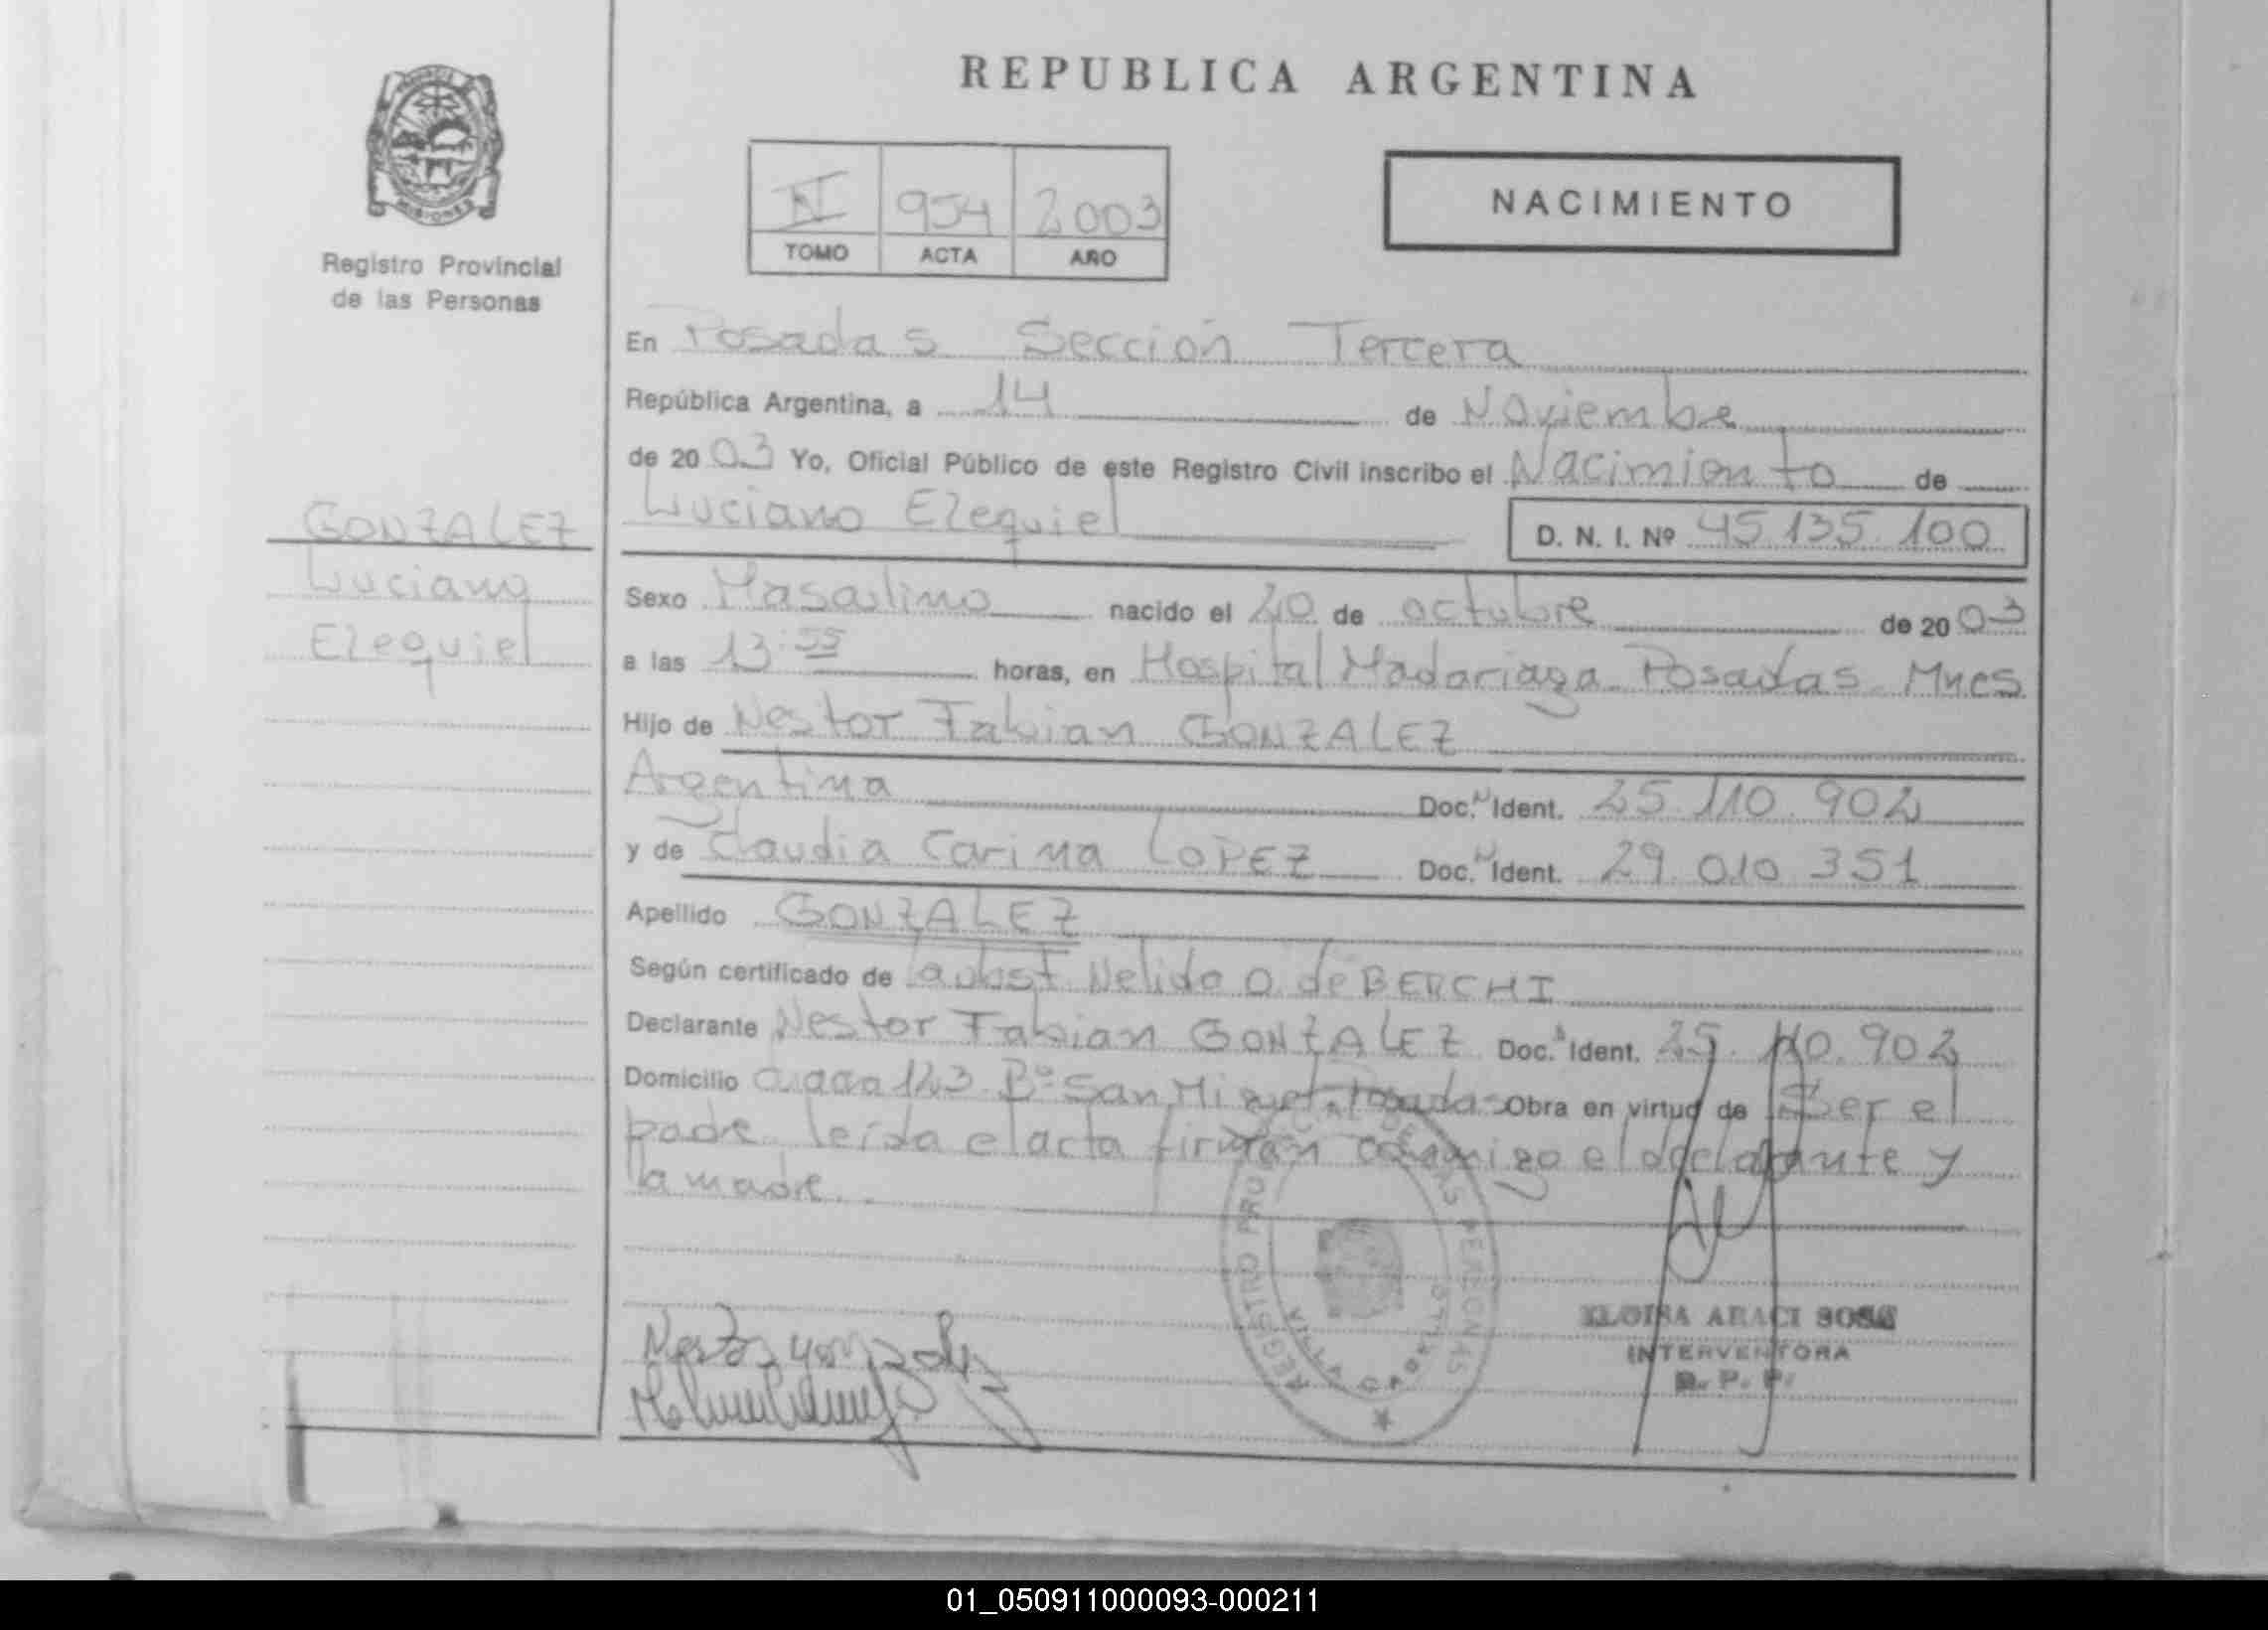 REPUBLICA ARGENTINA
MISIONES
Registro Provincial
de las Personas
954 2003
TOMO ACTA AÑO
NACIMIENTO
En Posadas Sección Tercera
República Argentina, a 14 de Noviembe
de 2003 Yo, Oficial Público de este Registro Civil inscribo el Nacimiento de
Luciano Ezequiel D. N. I. Nº 45.135.100
GONZALEZ
Luciano
Ezequiel
Sexo Masculino nacido el 20 de octubre de 2003
a las 13:55 horas, en Hospital Madariaga Posadas Mnes
Hijo de Nestor Fabian GONZALEZ
Argentina Doc. Ident. 25.110.902
y de Claudia Carina LOPEZ Doc. Ident. 29.010.351
Apellido GONZALEZ
Según certificado de la obst Nelida O. de BERCHI
Declarante Nestor Fabian GONZALEZ Doc. Ident. 25.110.902
Domicilio 123 Bº San Miguel Posadas Obra en virtud de Ser el
padre leída el acta firman conmigo el declarante y
la madre.
REGISTRO PROVINCIAL DE LAS PERSONAS
Nestor Gonzalez
ELOISA ARACI SOSA
INTERVENTORA
R. P. P.
01_050911000093-000211